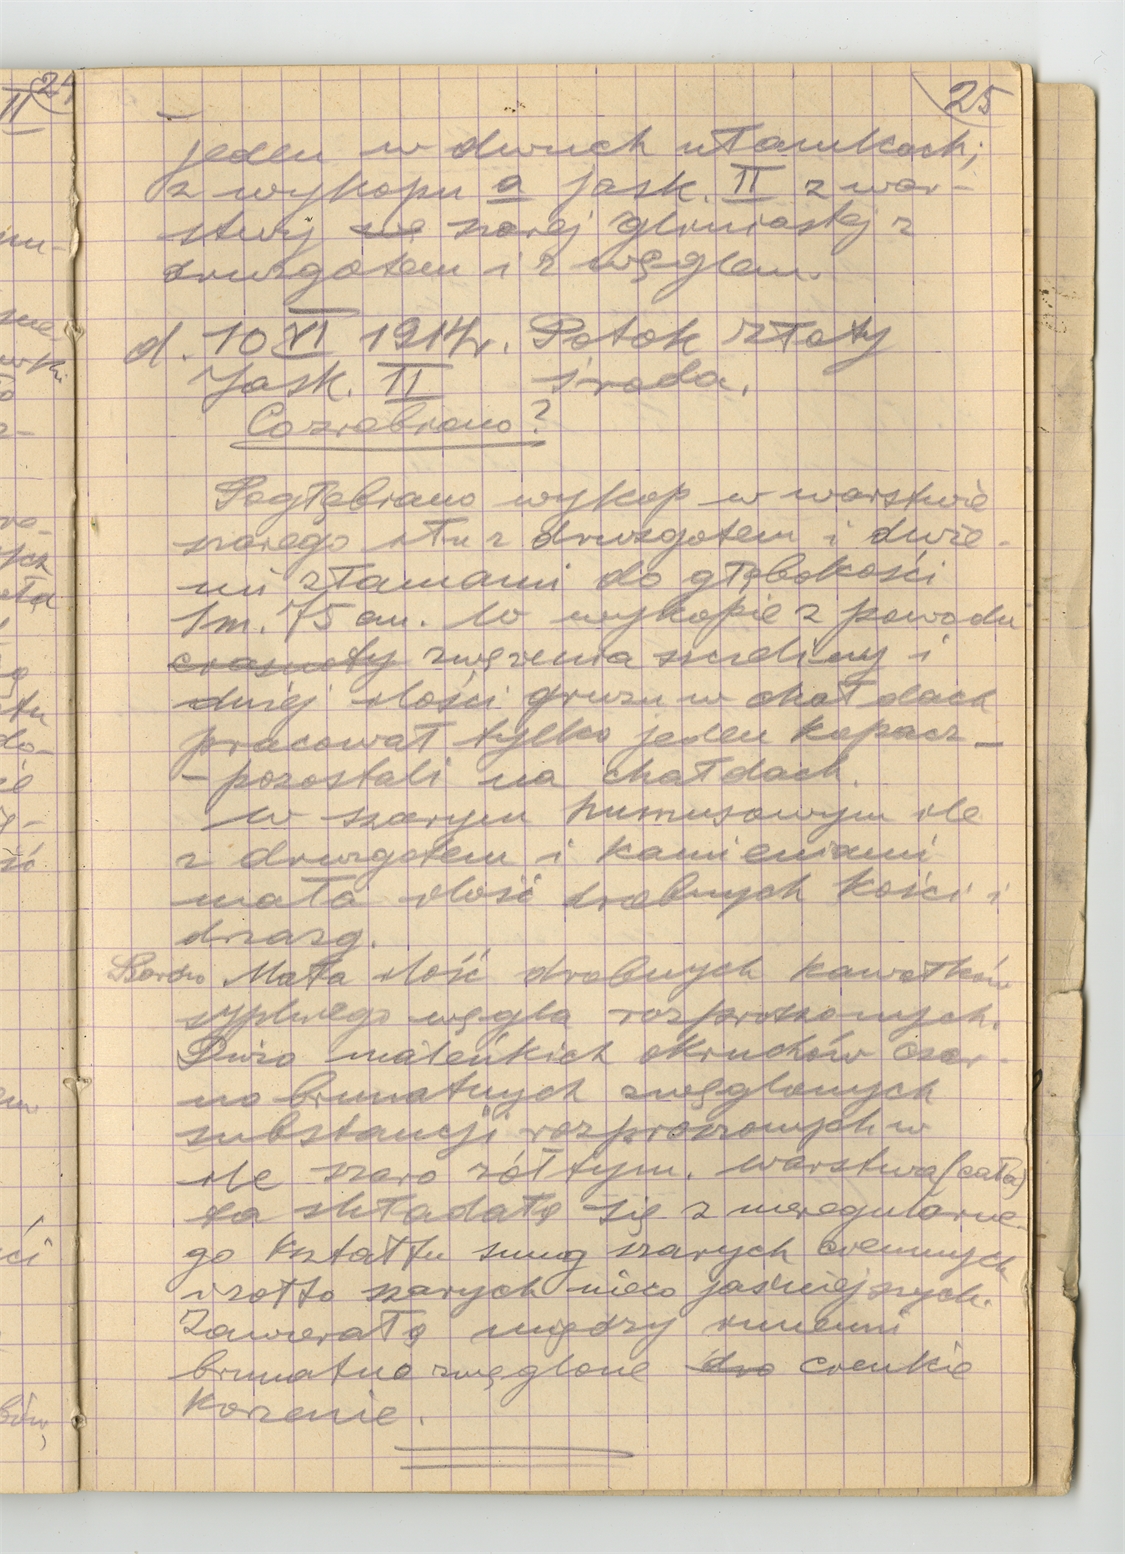 25
jeden w dwuch ułamkach;
z wykopu a jask. II z war-
stwy szarej gliniastej z
druzgotem i z węglem.
d. 10 XI 1914r. Potok Złoty
Jask. II środa.
Co zrobiono?
Pogłębiano wykop w warstwie
szarego iłu z druzgotem i duże-
mi złamami do głębokości
1m. 75 cm. W wykopie z powodu
ciasnoty zwężenia szczeliny i
dużej ilości gruzu w chałdach
pracował tylko jeden kopacz –
– pozostali na chałdach.
W szarym humusowym ile
z druzgotem i kamieniami
mała ilość drobnych kości i
drzazg.
Bardzo Mała ilość drobnych kawałków
sypkiego węgla rozproszonych.
Dużo maleńkich okruchów czar-
no brunatnych zwęglonych
substancji rozproszonych w
ile szaro żółtym. Warstwa (cała)
ta składała się z nieregularne-
go kształtu smug szarych ciemnych
i żółto szarych nieco jaśniejszych.
Zawierała między innemi
brunatno zwęglone dro cienkie
korzenie.